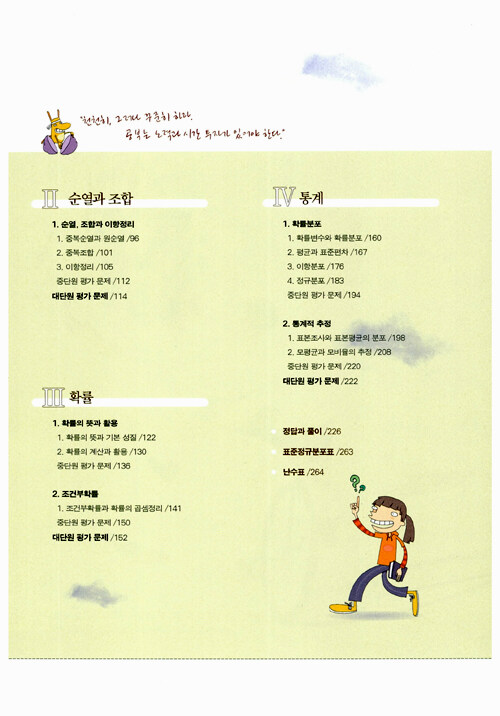 "천천히, 그러나 꾸준히 하라.
공부는 노력과 시간 투자가 있어야 한다."
II 순열과 조합
1. 순열, 조합과 이항정리
1. 중복순열과 원순열 /96
2. 중복조합 /101
3. 이항정리 /105
중단원 평가 문제 /112
대단원 평가 문제 /114
III 확률
1. 확률의 뜻과 활용
1. 확률의 뜻과 기본 성질 /122
2. 확률의 계산과 활용 /130
중단원 평가 문제 /136
2. 조건부확률
1. 조건부확률과 확률의 곱셈정리 /141
중단원 평가 문제 /150
대단원 평가 문제 /152
IV 통계
1. 확률분포
1. 확률변수와 확률분포 /160
2. 평균과 표준편차 /167
3. 이항분포 /176
4. 정규분포 /183
중단원 평가 문제 /194
2. 통계적 추정
1. 표본조사와 표본평균의 분포 /198
2. 모평균과 모비율의 추정 /208
중단원 평가 문제 /220
대단원 평가 문제 /222
정답과 풀이 /226
표준정규분포표 /263
난수표 /264